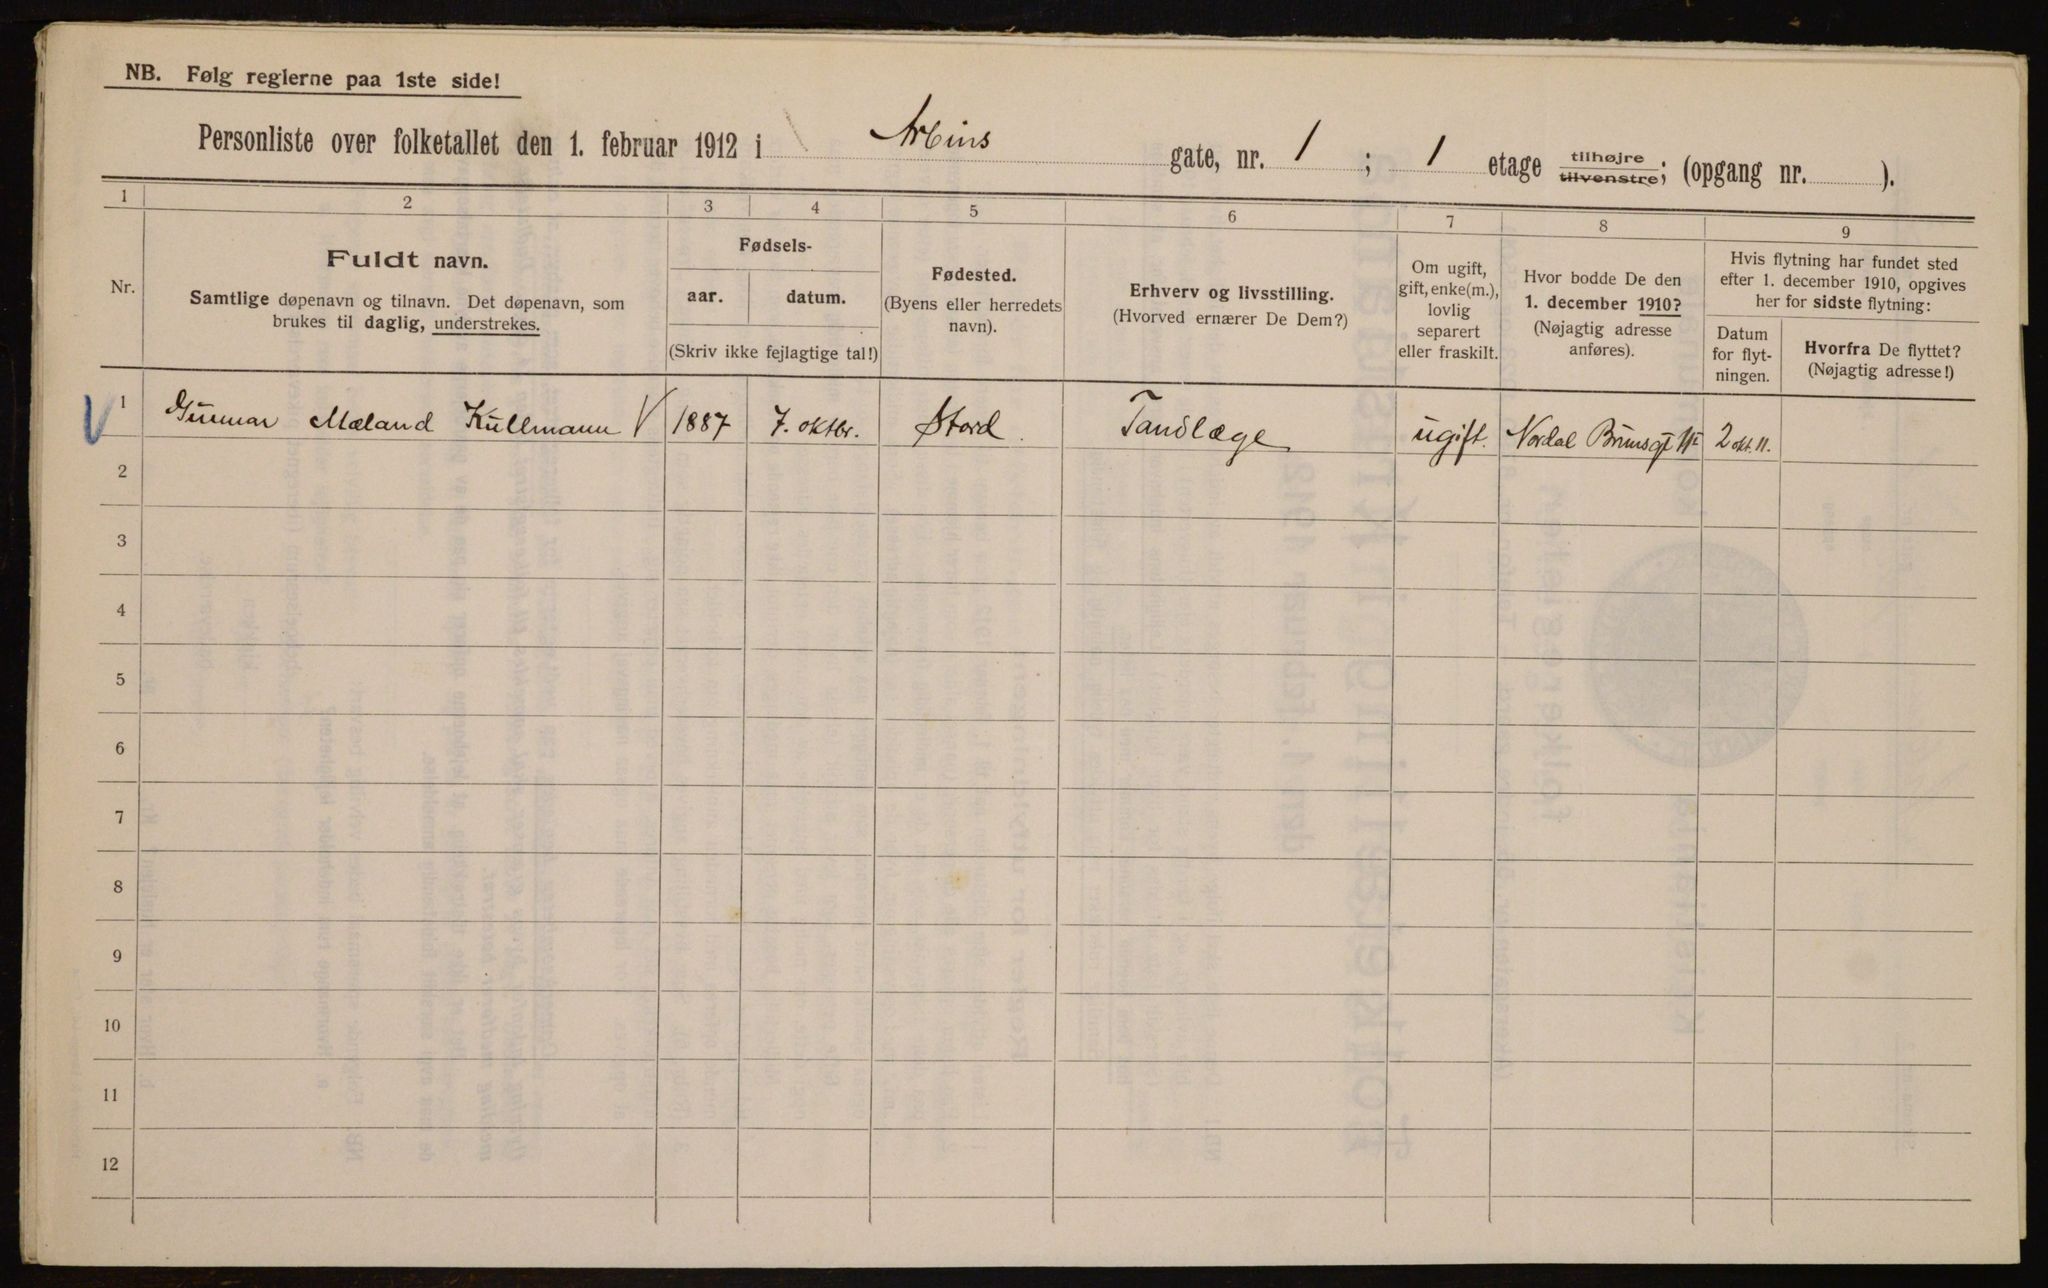 NB. Følg reglerne paa 1ste side!
Personliste over folketallet den 1. februar 1912 i Arbins gate, nr. 1 ; 1 etage tilhøjre tilvenstre; (opgang nr. ).
1 2 3 4 5 6 7 8 9
Nr.
Fuldt navn.
Samtlige døpenavn og tilnavn. Det døpenavn, som
brukes til daglig, understrekes.
Fødsels-
aar. datum.
(Skriv ikke fejlagtige tal!)
Fødested.
(Byens eller herredets
navn).
Erhverv og livsstilling.
(Hvorved ernærer De Dem?)
Om ugift,
gift, enke(m.),
lovlig
separert
eller fraskilt.
Hvor bodde De den
1. december 1910?
(Nøjagtig adresse
anføres).
Hvis flytning har fundet sted
efter 1. december 1910, opgives
her for sidste flytning:
Datum
for flyt-
ningen.
Hvorfra De flyttet?
(Nøjagtig adresse!)
1 Gunnar Mæland Kullmann V 1887 7. oktbr. Stord Tandlæge ugift. Nordal Brunsgt 2 okt. 11.
2
3
4
5
6
7
8
9
10
11
12